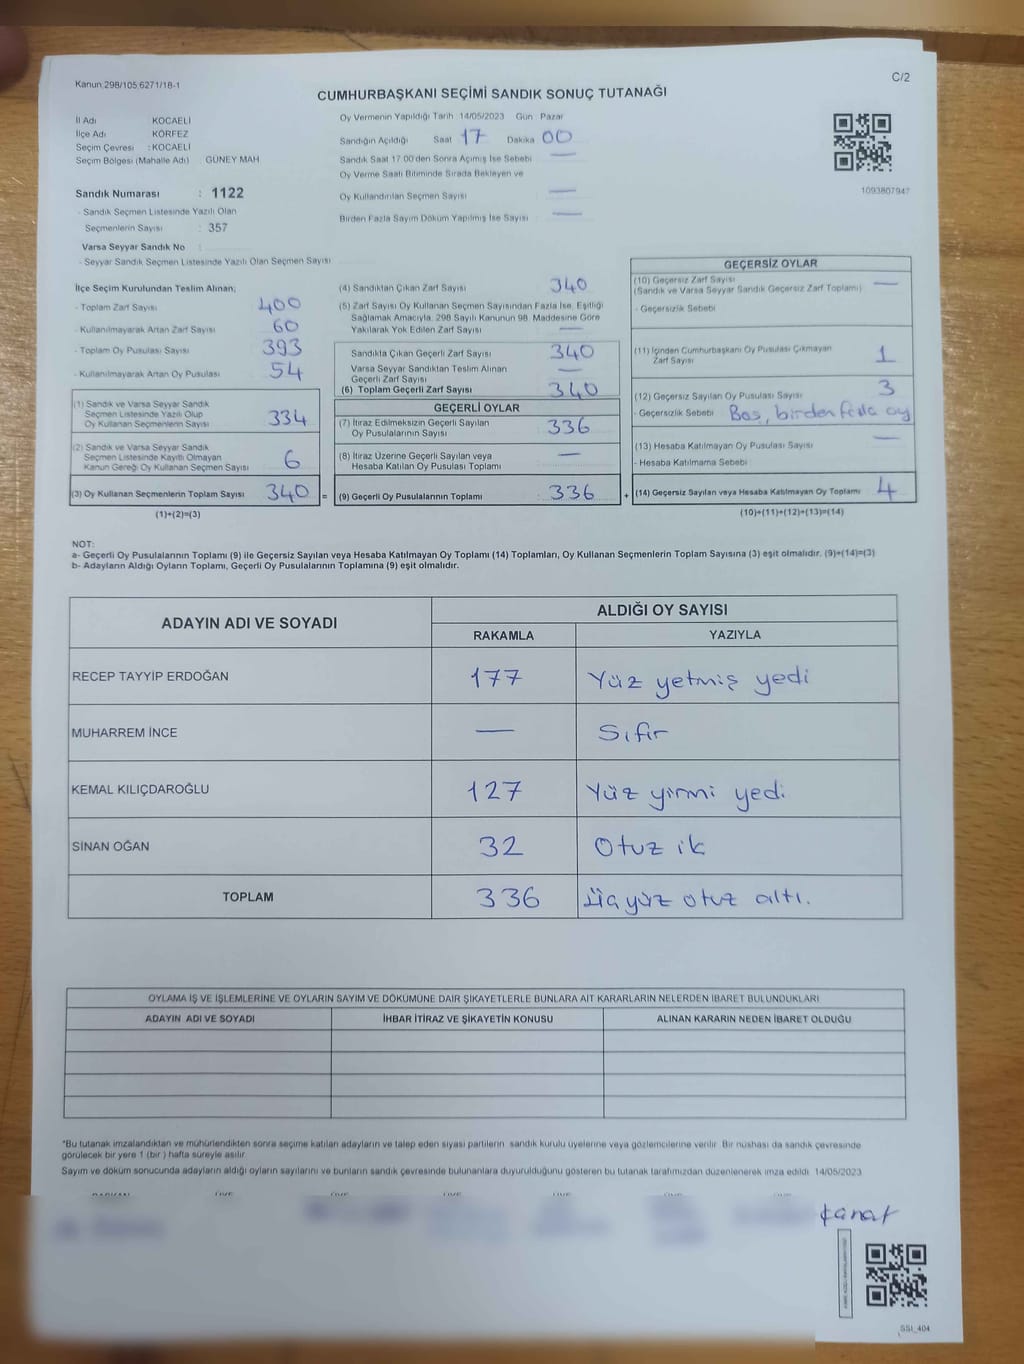 Kanun.298/105.6271/18-1
C/2
CUMHURBAŞKANI SEÇİMİ SANDIK SONUÇ TUTANAĞI
İl Adı KOCAELİ
İlçe Adı KÖRFEZ
Seçim Çevresi : KOCAELİ
Seçim Bölgesi (Mahalle Adı) GÜNEY MAH
Sandık Numarası : 1122
- Sandık Seçmen Listesinde Yazılı Olan
Seçmenlerin Sayısı : 357
Varsa Seyyar Sandık No :
- Seyyar Sandık Seçmen Listesinde Yazılı Olan Seçmen Sayısı
Oy Vermenin Yapıldığı Tarih 14/05/2023 Gün Pazar
Sandığın Açıldığı Saat 17 Dakika 00
Sandık Saat 17.00'den Sonra Açılmış İse Sebebi —
Oy Verme Saati Bitiminde Sırada Bekleyen ve
Oy Kullandırılan Seçmen Sayısı —
Birden Fazla Sayım Döküm Yapılmış İse Sayısı —
1093807947
İlçe Seçim Kurulundan Teslim Alınan;
- Toplam Zarf Sayısı 400
- Kullanılmayarak Artan Zarf Sayısı 60
- Toplam Oy Pusulası Sayısı 393
- Kullanılmayarak Artan Oy Pusulası 54
(1) Sandık ve Varsa Seyyar Sandık
Seçmen Listesinde Yazılı Olup
Oy Kullanan Seçmenlerin Sayısı 334
(2) Sandık ve Varsa Seyyar Sandık
Seçmen Listesinde Kayıtlı Olmayan
Kanun Gereği Oy Kullanan Seçmen Sayısı 6
(3) Oy Kullanan Seçmenlerin Toplam Sayısı 340 =
(1)+(2)=(3)
(4) Sandıktan Çıkan Zarf Sayısı 340
(5) Zarf Sayısı Oy Kullanan Seçmen Sayısından Fazla İse, Eşitliği
Sağlamak Amacıyla; 298 Sayılı Kanunun 98. Maddesine Göre
Yakılarak Yok Edilen Zarf Sayısı —
Sandıkta Çıkan Geçerli Zarf Sayısı 340
Varsa Seyyar Sandıktan Teslim Alınan
Geçerli Zarf Sayısı —
(6) Toplam Geçerli Zarf Sayısı 340
GEÇERLİ OYLAR
(7) İtiraz Edilmeksizin Geçerli Sayılan
Oy Pusulalarının Sayısı 336
(8) İtiraz Üzerine Geçerli Sayılan veya
Hesaba Katılan Oy Pusulası Toplamı —
(9) Geçerli Oy Pusulalarının Toplamı : 336 +
GEÇERSİZ OYLAR
(10) Geçersiz Zarf Sayısı —
(Sandık ve Varsa Seyyar Sandık Geçersiz Zarf Toplamı)
- Geçersizlik Sebebi
(11) İçinden Cumhurbaşkanı Oy Pusulası Çıkmayan
Zarf Sayısı 1
(12) Geçersiz Sayılan Oy Pusulası Sayısı 3
- Geçersizlik Sebebi Boş, birden fazla oy
(13) Hesaba Katılmayan Oy Pusulası Sayısı —
- Hesaba Katılmama Sebebi
(14) Geçersiz Sayılan veya Hesaba Katılmayan Oy Toplamı 4
(10)+(11)+(12)+(13)=(14)
NOT:
a- Geçerli Oy Pusulalarının Toplamı (9) ile Geçersiz Sayılan veya Hesaba Katılmayan Oy Toplamı (14) Toplamları, Oy Kullanan Seçmenlerin Toplam Sayısına (3) eşit olmalıdır. (9)+(14)=(3)
b- Adayların Aldığı Oyların Toplamı, Geçerli Oy Pusulalarının Toplamına (9) eşit olmalıdır.
ADAYIN ADI VE SOYADI
ALDIĞI OY SAYISI
RAKAMLA YAZIYLA
RECEP TAYYİP ERDOĞAN 177 Yüz yetmiş yedi
MUHARREM İNCE — Sıfır
KEMAL KILIÇDAROĞLU 127 Yüz yirmi yedi
SİNAN OĞAN 32 Otuz ik
TOPLAM 336 Üçyüz otuz altı.
OYLAMA İŞ VE İŞLEMLERİNE VE OYLARIN SAYIM VE DÖKÜMÜNE DAİR ŞİKAYETLERLE BUNLARA AİT KARARLARIN NELERDEN İBARET BULUNDUKLARI
ADAYIN ADI VE SOYADI İHBAR İTİRAZ VE ŞİKAYETİN KONUSU ALINAN KARARIN NEDEN İBARET OLDUĞU
*Bu tutanak imzalandıktan ve mühürlendikten sonra seçime katılan adayların ve talep eden siyasi partilerin sandık kurulu üyelerine veya gözlemcilerine verilir. Bir nüshası da sandık çevresinde
görülecek bir yere 1 (bir) hafta süreyle asılır.
Sayım ve döküm sonucunda adayların aldığı oyların sayılarını ve bunların sandık çevresinde bulunanlara duyurulduğunu gösteren bu tutanak tarafımızdan düzenlenerek imza edildi. 14/05/2023
SSI_404